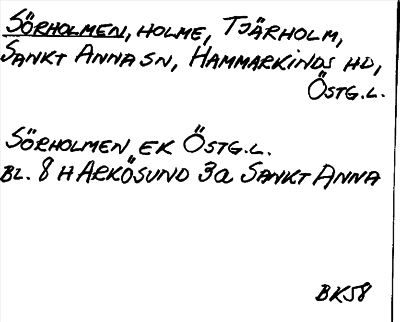 SÖRHOLMEN, HOLME, TJÄRHOLM,
SANKT ANNA SN, HAMMARKINDS HD,
ÖSTG.L.
SÖRHOLMEN EK ÖSTG.L.
BL. 8 H ARKÖSUND 3a SANKT ANNA
BK58